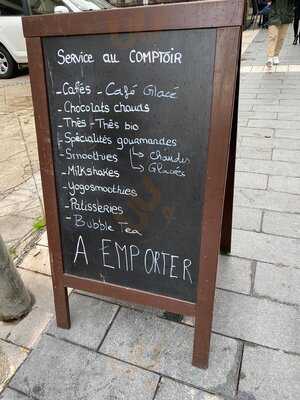 Service au COMPTOIR
- Cafés - Café Glacé
- Chocolats chauds
- Thés - Thés bio
- Spécialités gourmandes
- Smoothies ↳ chaudes
- Milkshakes ↳ Glacés
- Yogosmoothies
- Pâtisseries
- Bubble Tea
A EMPORTER